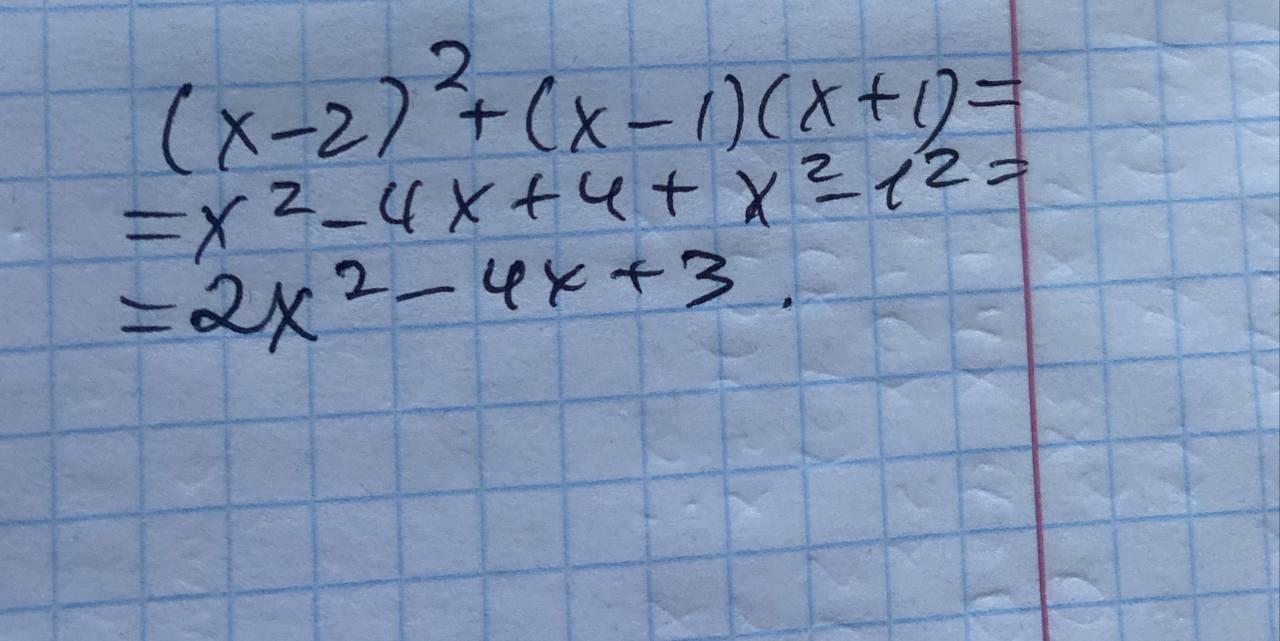 (x-2)²+(x-1)(x+1)=
=x²-4x+4+x²-1²=
=2x²-4x+3.